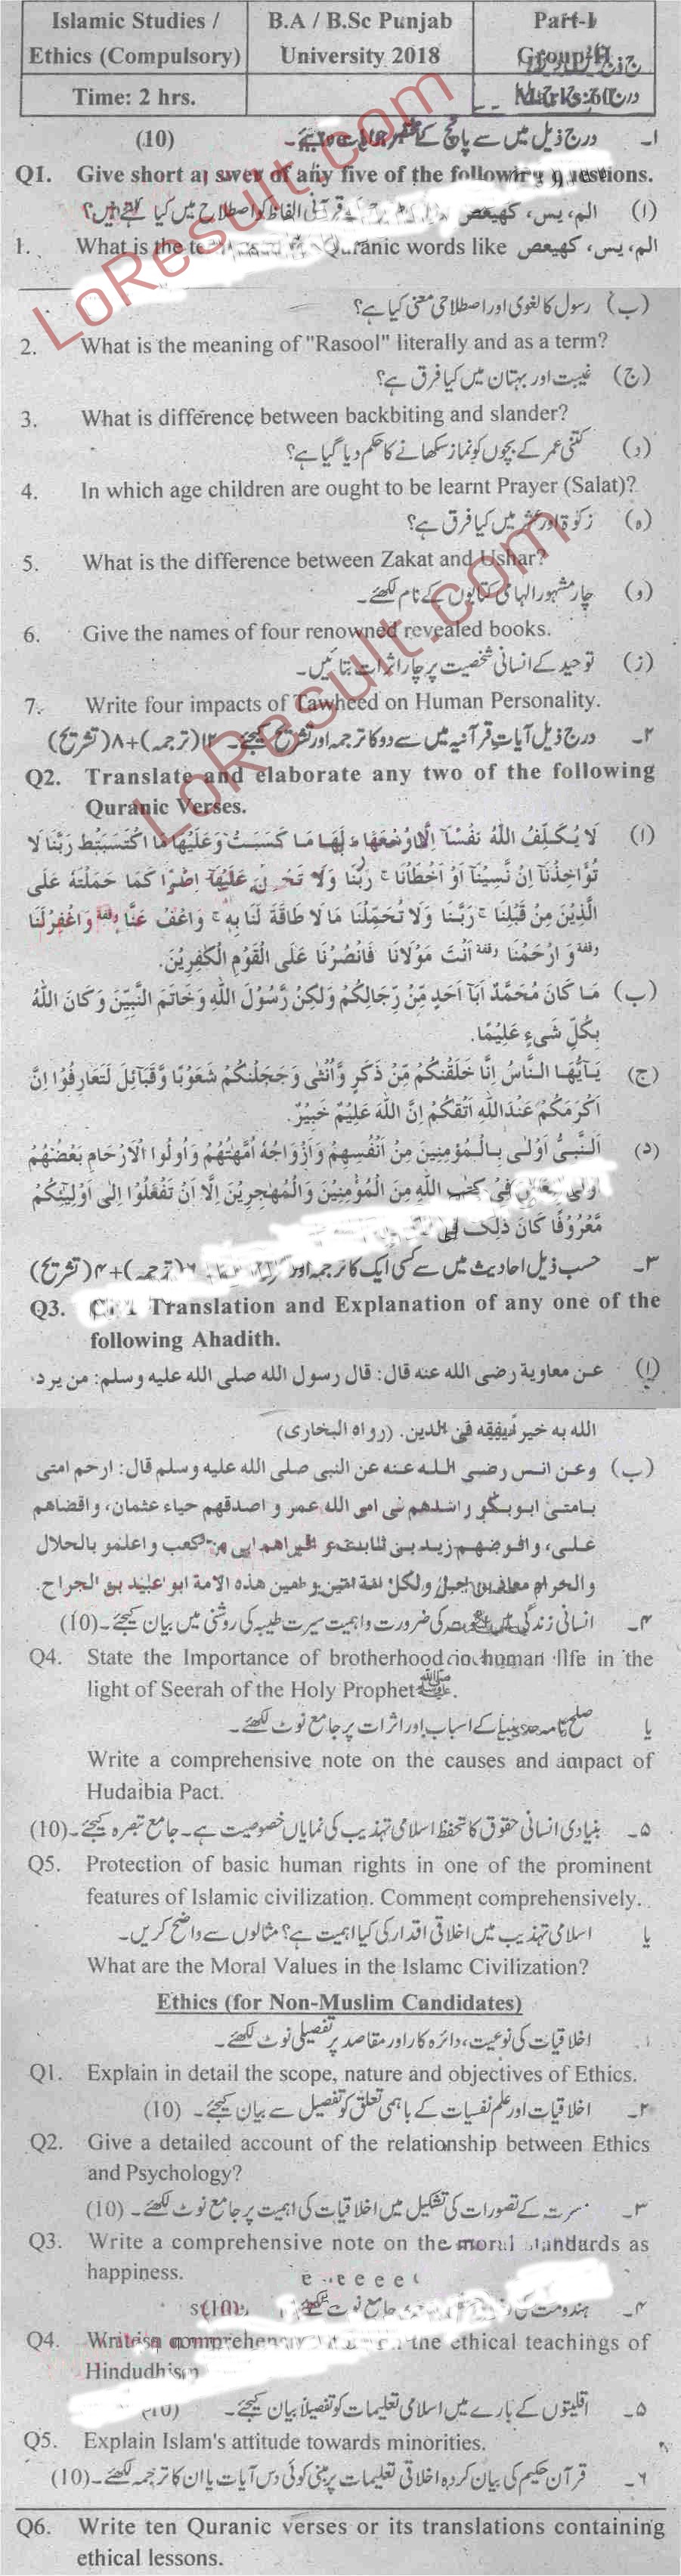 Islamic Studies / Ethics (Compulsory)
B.A / B.Sc Punjab University 2018
Part-I
Group-II
Time: 2 hrs.
Marks: 60
۱۔ درج ذیل میں سے پانچ کے مختصر جوابات (10)
Q1. Give short answer of any five of the following questions.
(ا) الم، یس، کھیعص قرآنی الفاظ کو اصطلاح میں کیا کہتے ہیں؟
1. What is the Quranic words like الم، یس، کھیعص
(ب) رسول کا لغوی اور اصطلاحی معنی کیا ہے؟
2. What is the meaning of "Rasool" literally and as a term?
(ج) غیبت اور بہتان میں کیا فرق ہے؟
3. What is difference between backbiting and slander?
(د) کتنی عمر کے بچوں کو نماز سکھانے کا حکم دیا گیا ہے؟
4. In which age children are ought to be learnt Prayer (Salat)?
(ہ) زکوٰۃ اور عشر میں کیا فرق ہے؟
5. What is the difference between Zakat and Ushar?
(و) چار مشہور الہامی کتابوں کے نام لکھئے۔
6. Give the names of four renowned revealed books.
(ز) توحید کے انسانی شخصیت پر چار اثرات بتائیں۔
7. Write four impacts of Tawheed on Human Personality.
۲۔ درج ذیل آیات قرآنیہ میں سے دو کا ترجمہ اور تشریح کیجئے۔ ۱۲(ترجمہ)+۸(تشریح)
Q2. Translate and elaborate any two of the following
Quranic Verses.
(ا) لَا يُكَلِّفُ اللّٰهُ نَفْسًا اِلَّا وُسْعَهَا لَهَا مَا كَسَبَتْ وَعَلَيْهَا مَا اكْتَسَبَتْ رَبَّنَا لَا
تُؤَاخِذْنَا اِنْ نَّسِيْنَا اَوْ اَخْطَاْنَا رَبَّنَا وَلَا تَحْمِلْ عَلَيْنَا اِصْرًا كَمَا حَمَلْتَهٗ عَلَى
الَّذِيْنَ مِنْ قَبْلِنَا رَبَّنَا وَلَا تُحَمِّلْنَا مَا لَا طَاقَةَ لَنَا بِهٖ وَاعْفُ عَنَّا وَاغْفِرْلَنَا
وَارْحَمْنَا اَنْتَ مَوْلَانَا فَانْصُرْنَا عَلَى الْقَوْمِ الْكٰفِرِيْنَ.
(ب) مَا كَانَ مُحَمَّدٌ اَبَآ اَحَدٍ مِّنْ رِّجَالِكُمْ وَلٰكِنْ رَّسُوْلَ اللّٰهِ وَخَاتَمَ النَّبِيّٖنَ وَكَانَ اللّٰهُ
بِكُلِّ شَيْءٍ عَلِيْمًا.
(ج) يٰۤاَيُّهَا النَّاسُ اِنَّا خَلَقْنٰكُمْ مِّنْ ذَكَرٍ وَّاُنْثٰى وَجَعَلْنٰكُمْ شُعُوْبًا وَّقَبَآئِلَ لِتَعَارَفُوْا اِنَّ
اَكْرَمَكُمْ عِنْدَاللّٰهِ اَتْقٰكُمْ اِنَّ اللّٰهَ عَلِيْمٌ خَبِيْرٌ.
(د) اَلنَّبِيُّ اَوْلٰى بِالْمُؤْمِنِيْنَ مِنْ اَنْفُسِهِمْ وَاَزْوَاجُهٗ اُمَّهٰتُهُمْ وَاُولُوا الْاَرْحَامِ بَعْضُهُمْ
اَوْلٰى فِيْ كِتٰبِ اللّٰهِ مِنَ الْمُؤْمِنِيْنَ وَالْمُهٰجِرِيْنَ اِلَّا اَنْ تَفْعَلُوْا اِلٰى اَوْلِيٰٓئِكُمْ
مَّعْرُوْفًا كَانَ ذٰلِكَ فِي
۳۔ حسب ذیل احادیث میں سے کسی ایک کا ترجمہ اور (ترجمہ)+۴(تشریح)
Q3. Translation and Explanation of any one of the
following Ahadith.
(ا) عن معاوية رضى الله عنه قال: قال رسول الله صلى الله عليه وسلم: من يرد
الله به خيراً يفقهه فى الدين. (رواه البخارى)
(ب) وعن انس رضى الله عنه عن النبى صلى الله عليه وسلم قال: ارحم امتى
بامتى ابوبكر واشدهم فى امر الله عمر و اصدقهم حياء عثمان، واقضاهم
على، وافرضهم زيد بن ثابت و اقراهم ابى بن كعب واعلمو بالحلال
والحرام معاذ بن جبل ولكل امة امين و امين هذه الامة ابو عبيد بن الجراح.
۴۔ انسانی زندگی میں کی ضرورت واہمیت سیرت طیبہ کی روشنی میں بیان کیجئے۔ (10)
Q4. State the Importance of brotherhood in human life in the
light of Seerah of the Holy Prophet ﷺ.
یا صلح نامہ حدیبیا کے اسباب اور اثرات پر جامع نوٹ لکھئے۔
Write a comprehensive note on the causes and impact of
Hudaibia Pact.
۵۔ بنیادی انسانی حقوق کا تحفظ اسلامی تہذیب کی نمایاں خصوصیت ہے۔ جامع تبصرہ کیجئے۔ (10)
Q5. Protection of basic human rights in one of the prominent
features of Islamic civilization. Comment comprehensively.
یا اسلامی تہذیب میں اخلاقی اقدار کی کیا اہمیت ہے؟ مثالوں سے واضح کریں۔
What are the Moral Values in the Islamc Civilization?
Ethics (for Non-Muslim Candidates)
۱۔ اخلاقیات کی نوعیت، دائرہ کار اور مقاصد پر تفصیلی نوٹ لکھئے۔
Q1. Explain in detail the scope, nature and objectives of Ethics.
۲۔ اخلاقیات اور علم نفسیات کے باہمی تعلق کو تفصیل سے بیان کیجئے۔ (10)
Q2. Give a detailed account of the relationship between Ethics
and Psychology?
۳۔ مسرت کے تصورات کی تشکیل میں اخلاقیات کی اہمیت پر جامع نوٹ لکھئے۔ (10)
Q3. Write a comprehensive note on the moral standards as
happiness.
۴۔ ہندومت کی جامع نوٹ لکھئے (10)
Q4. Write a comprehensive the ethical teachings of
Hindudhism
۵۔ اقلیتوں کے بارے میں اسلامی تعلیمات کو تفصیلاً بیان کیجئے۔ (10)
Q5. Explain Islam's attitude towards minorities.
۶۔ قرآن حکیم کی بیان کردہ اخلاقی تعلیمات پر مبنی کوئی دس آیات یا ان کا ترجمہ لکھئے۔ (10)
Q6. Write ten Quranic verses or its translations containing
ethical lessons.
LoResult.com
LoResult.com